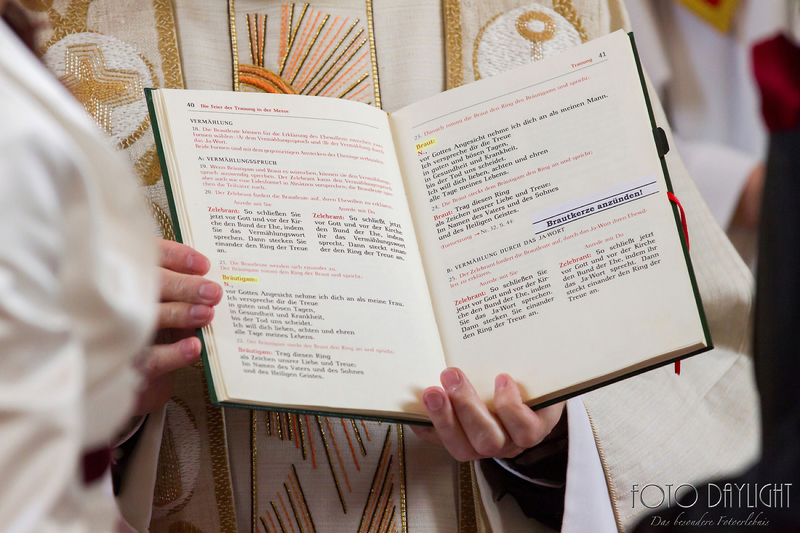 40 Die Feier der Trauung in der Messe
VERMÄHLUNG
18. Die Brautleute können für die Erklärung des Ehewillens zwischen zwei
Formen wählen: (A) dem Vermählungsspruch und (B) der Vermählung durch
das Ja-Wort.
Beide Formen sind mit dem gegenseitigen Anstecken der Eheringe verbunden.
A: VERMÄHLUNGSSPRUCH
19. Wenn Bräutigam und Braut es wünschen, können sie den Vermählungs-
spruch auswendig sprechen. Der Zelebrant kann den Vermählungsspruch
aber auch
die Teilsätze nach.
20. Der Zelebrant fordert die Brautleute auf, ihren Ehewillen zu erklären.
Anrede mit Sie
Zelebrant: So schließen Sie
jetzt vor Gott und vor der Kir-
che den Bund der Ehe, indem
Sie das Vermählungswort
sprechen. Dann stecken Sie
einander den Ring der Treue
an.
Anrede mit Du
Zelebrant: So schließt jetzt
vor Gott und vor der Kirche
den Bund der Ehe, indem
ihr das Vermählungswort
sprecht. Dann steckt einan-
der den Ring der Treue an.
21. Die Brautleute wenden sich einander zu.
Der Bräutigam nimmt den Ring der Braut und spricht:
Bräutigam:
N.,
vor Gottes Angesicht nehme ich dich an als meine Frau.
Ich verspreche dir die Treue
in guten und bösen Tagen,
in Gesundheit und Krankheit,
bis der Tod uns scheidet.
Ich will dich lieben, achten und ehren
alle Tage meines Lebens.
22. Der Bräutigam steckt der Braut den Ring an und spricht:
Bräutigam: Trag diesen Ring
als Zeichen unsrer Liebe und Treue:
Im Namen des Vaters und des Sohnes
und des Heiligen Geistes.
Trauung 41
23. Danach nimmt die Braut den Ring des Bräutigams und spricht:
Braut:
N.,
vor Gottes Angesicht nehme ich dich an als meinen Mann.
Ich verspreche dir die Treue
in guten und bösen Tagen,
in Gesundheit und Krankheit,
bis der Tod uns scheidet.
Ich will dich lieben, achten und ehren
alle Tage meines Lebens.
24. Die Braut steckt dem Bräutigam den Ring an und spricht:
Braut: Trag diesen Ring
als Zeichen unsrer Liebe und Treue:
Im Namen des Vaters und des Sohnes
und des Heiligen Geistes.
Fortsetzung → Nr. 32, S. 44
Brautkerze anzünden!
B: VERMÄHLUNG DURCH DAS JA-WORT
25. Der Zelebrant fordert die Brautleute auf, durch das Ja-Wort ihren Ehewil-
len zu erklären.
Anrede mit Sie
Zelebrant: So schließen Sie
jetzt vor Gott und vor der Kirche
den Bund der Ehe, indem
Sie das Ja-Wort sprechen.
Dann stecken Sie einander
den Ring der Treue an.
Anrede mit Du
Zelebrant: So schließt jetzt
vor Gott und vor der Kirche
den Bund der Ehe, indem ihr
das Ja-Wort sprecht. Dann
steckt einander den Ring der
Treue an.
FOTO DAYLIGHT
Das besondere Fotoerlebnis